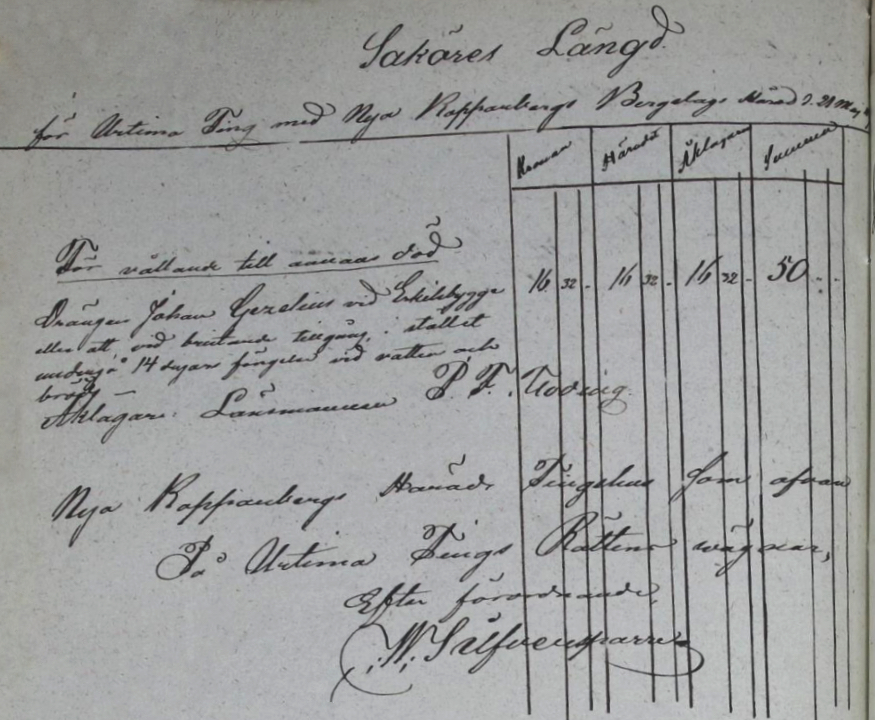 Saköres Längd
för Urtima Ting med Nya Kopparbergs Bergslags Härad d. 21 May
Kronan Häradet Åklagaren Summa
För vållande till annans död
Drängen Johan Gezelius vid Eskilsbygge 16 32 . 16 32 . 16 32 . 50 . .
eller att, vid bristande tillgång, i stället
undergå 14 dygns fängelse vid vatten och
bröd
Åklagare: Länsmannen P. F.
Nya Kopparbergs Härads Tingshus som ofvan
På Urtima Tings Rättens wägnar,
Efter förordnande,
W. Silfversparre